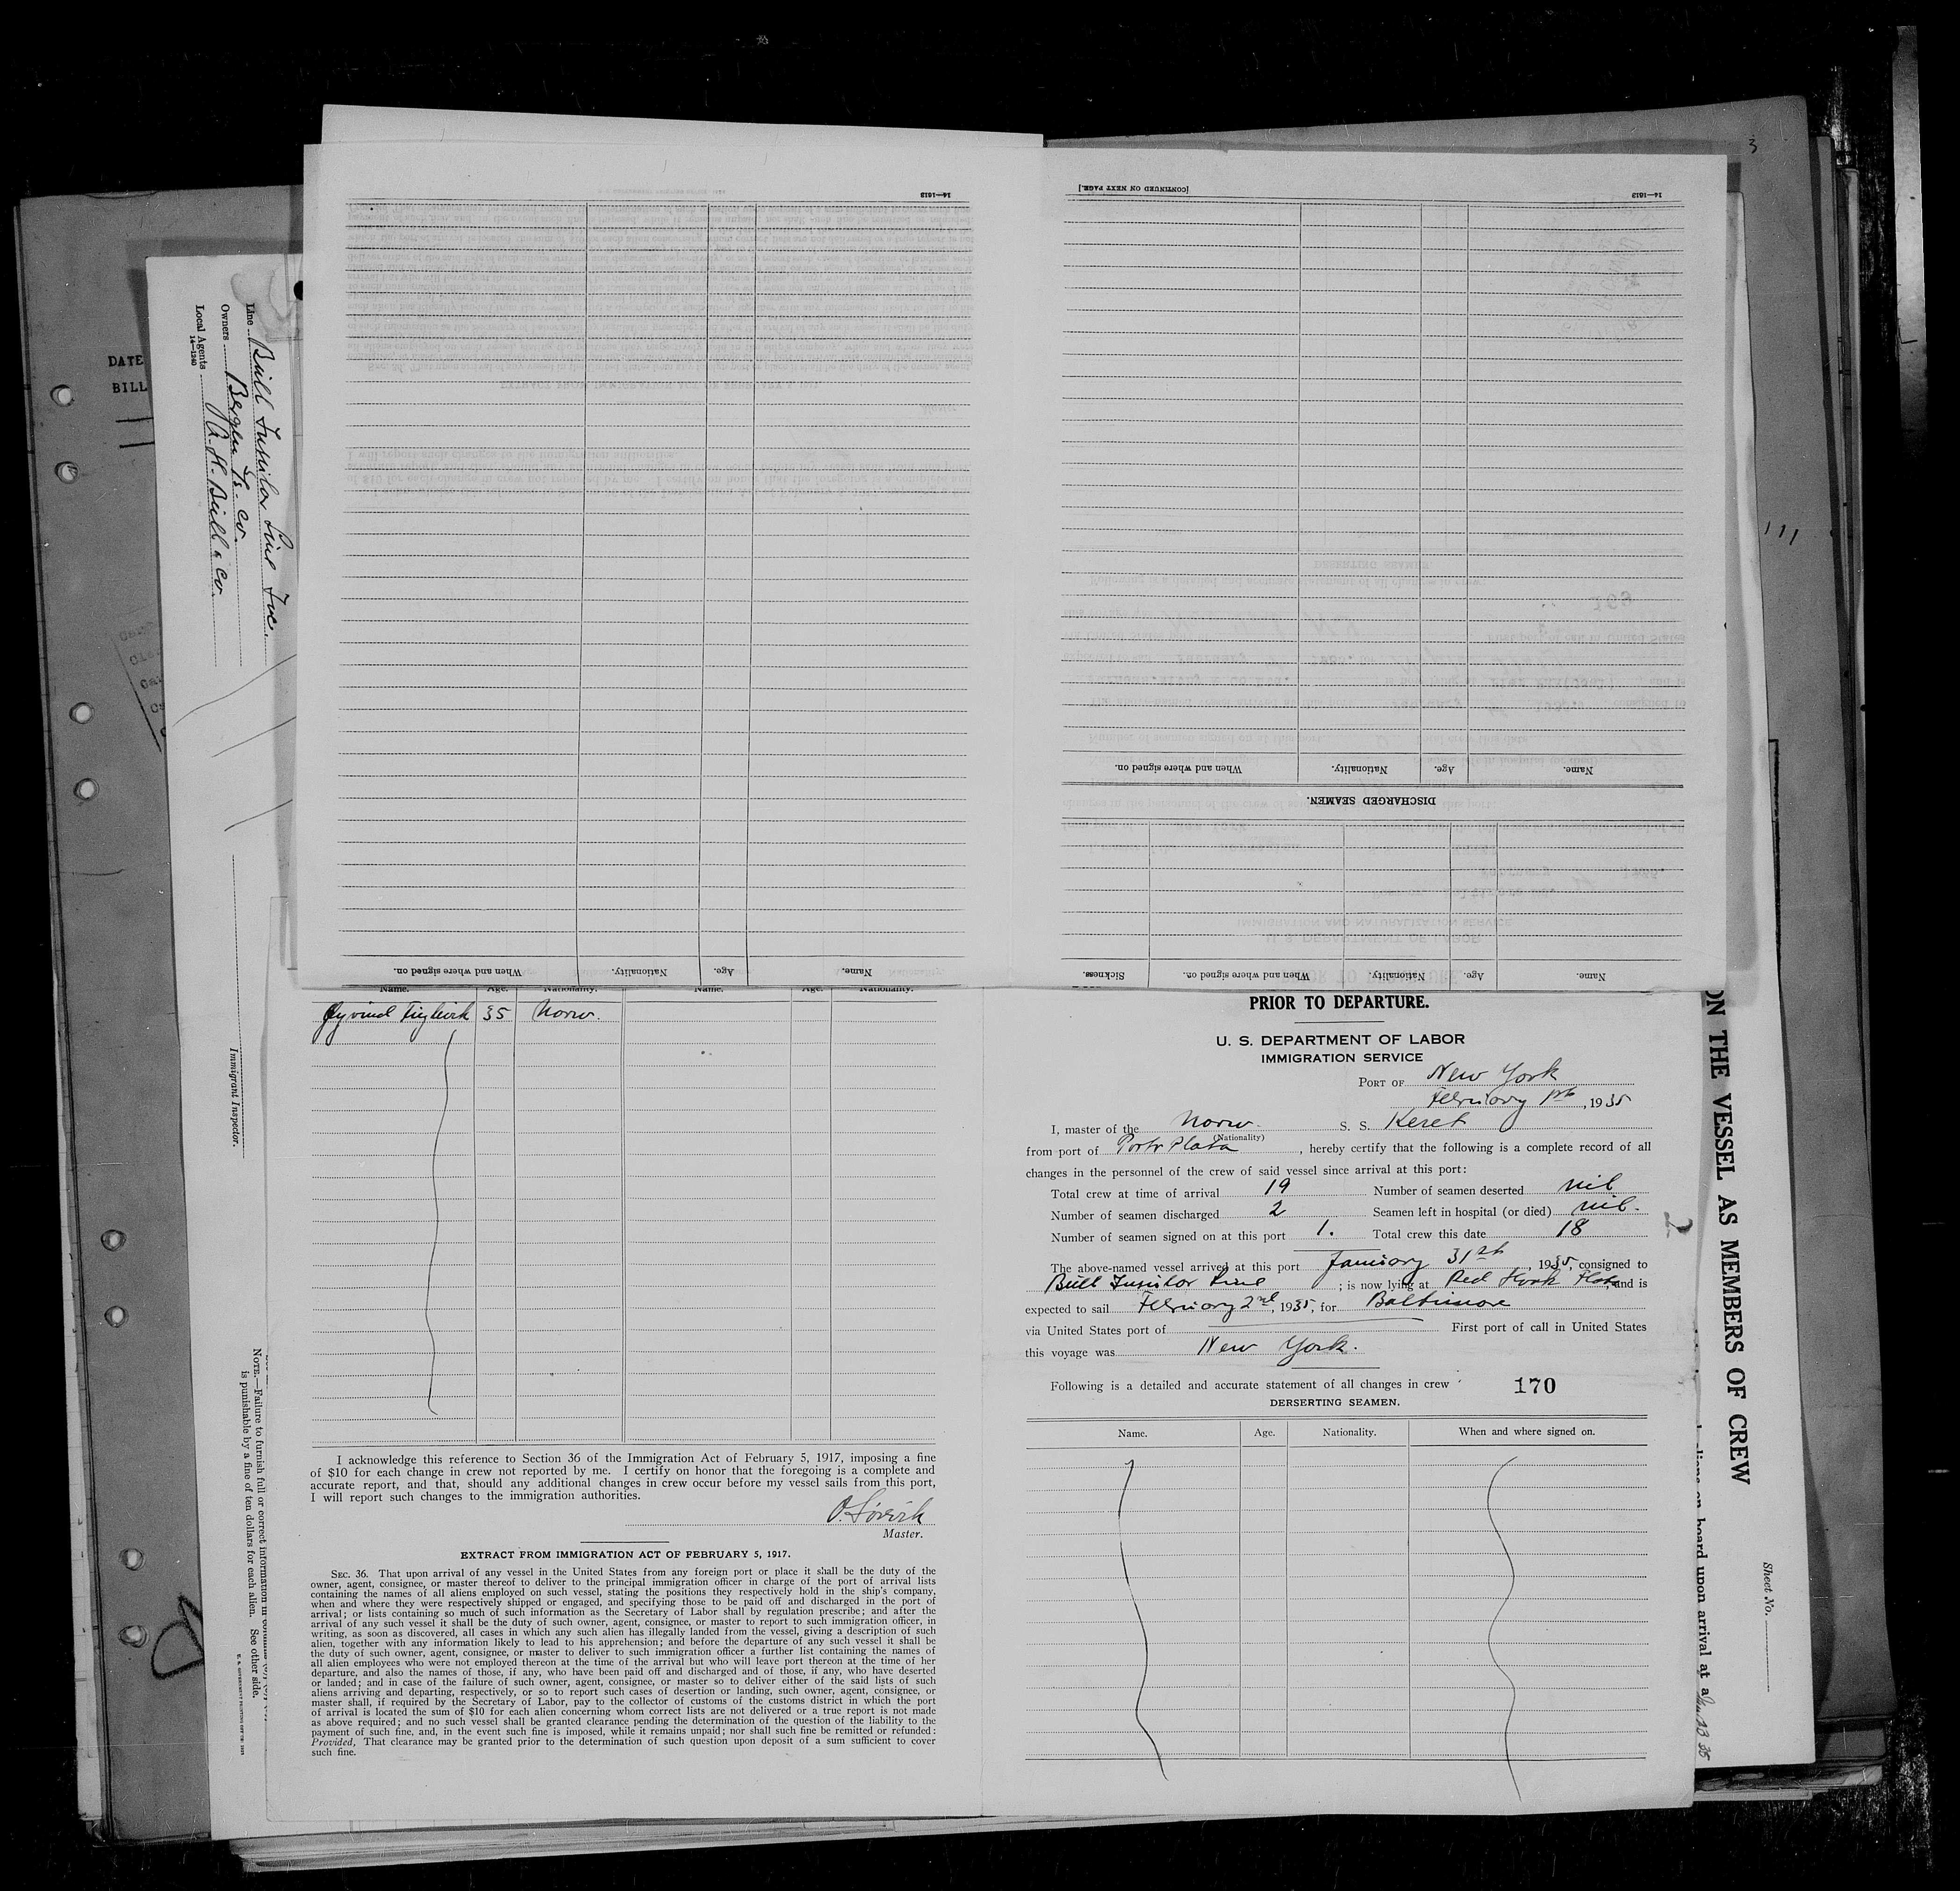 3
[CONTINUED ON NEXT PAGE.]
14—1613
14—1613
DATE
BILL
Line Bull Insular Line Inc.
Owners Bergen Ss. Co.
Local Agents A. H. Bull & Co.
14—1240
Immigrant Inspector.
NOTE.—Failure to furnish full or correct information in
is punishable by a fine of ten dollars for each alien. See other side.
Name. Nationality. Age. When and where signed on.
DISCHARGED SEAMEN.
Name. Age. Nationality. When and where signed on. Sickness.
Name. Age. Nationality. When and where signed on.
Name. Age. Nationality. Name. Age. Nationality.
Øyvind 35 Norw.
I acknowledge this reference to Section 36 of the Immigration Act of February 5, 1917, imposing a fine
of $10 for each change in crew not reported by me. I certify on honor that the foregoing is a complete and
accurate report, and that, should any additional changes in crew occur before my vessel sails from this port,
I will report such changes to the immigration authorities.
Master.
EXTRACT FROM IMMIGRATION ACT OF FEBRUARY 5, 1917.
SEC. 36. That upon arrival of any vessel in the United States from any foreign port or place it shall be the duty of the
owner, agent, consignee, or master thereof to deliver to the principal immigration officer in charge of the port of arrival lists
containing the names of all aliens employed on such vessel, stating the positions they respectively hold in the ship's company,
when and where they were respectively shipped or engaged, and specifying those to be paid off and discharged in the port of
arrival; or lists containing so much of such information as the Secretary of Labor shall by regulation prescribe; and after the
arrival of any such vessel it shall be the duty of such owner, agent, consignee, or master to report to such immigration officer, in
writing, as soon as discovered, all cases in which any such alien has illegally landed from the vessel, giving a description of such
alien, together with any information likely to lead to his apprehension; and before the departure of any such vessel it shall be
the duty of such owner, agent, consignee, or master to deliver to such immigration officer a further list containing the names of
all alien employees who were not employed thereon at the time of the arrival but who will leave port thereon at the time of her
departure, and also the names of those, if any, who have been paid off and discharged and of those, if any, who have deserted
or landed; and in case of the failure of such owner, agent, consignee, or master so to deliver either of the said lists of such
aliens arriving and departing, respectively, or so to report such cases of desertion or landing, such owner, agent, consignee, or
master shall, if required by the Secretary of Labor, pay to the collector of customs of the customs district in which the port
of arrival is located the sum of $10 for each alien concerning whom correct lists are not delivered or a true report is not made
as above required; and no such vessel shall be granted clearance pending the determination of the question of the liability to the
payment of such fine, and, in the event such fine is imposed, while it remains unpaid; nor shall such fine be remitted or refunded:
Provided, That clearance may be granted prior to the determination of such question upon deposit of a sum sufficient to cover
such fine.
PRIOR TO DEPARTURE.
U. S. DEPARTMENT OF LABOR
IMMIGRATION SERVICE
PORT OF New York
February 1st, 1935
I, master of the Norw. S. S. Keret
(Nationality)
from port of Porto Plata, hereby certify that the following is a complete record of all
changes in the personnel of the crew of said vessel since arrival at this port:
Total crew at time of arrival 19 Number of seamen deserted nil
Number of seamen discharged 2 Seamen left in hospital (or died) nil.
Number of seamen signed on at this port 1. Total crew this date 18
The above-named vessel arrived at this port January 31st, 1935, consigned to
Bull Insular Line; is now lying at Red Hook Flats, and is
expected to sail February 2nd, 1935, for Baltimore
via United States port of First port of call in United States
this voyage was New York.
Following is a detailed and accurate statement of all changes in crew
170
DERSERTING SEAMEN.
Name. Age. Nationality. When and where signed on.
ON THE VESSEL AS MEMBERS OF CREW
on board upon arrival at a
Sheet No.
2